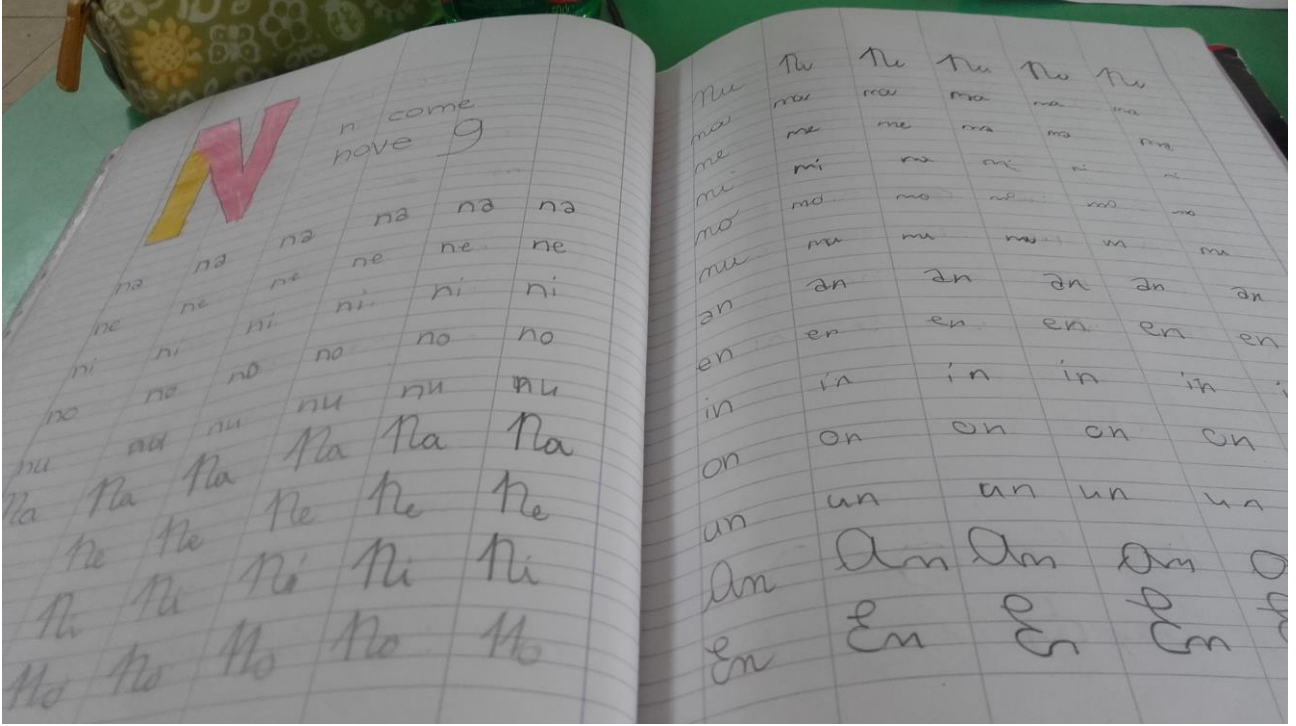 N
n come
nove 9
na na na na na na
ne ne ne ne ne ne
ni ni ni ni ni ni
no no no no no no
nu nu nu nu nu nu
Na Na Na Na Na Na
Ne Ne Ne Ne Ne
Ni Ni Ni Ni Ni
No No No No No
nu Nu Nu Nu Nu Nu
na na na na na na
ne ne ne
ni ni ni ni ni
no no no no no
nu nu nu nu nu
an an an an an an
en en en en en en
in in in in in
on on on on on
un un un un un
An An An An
En En En En